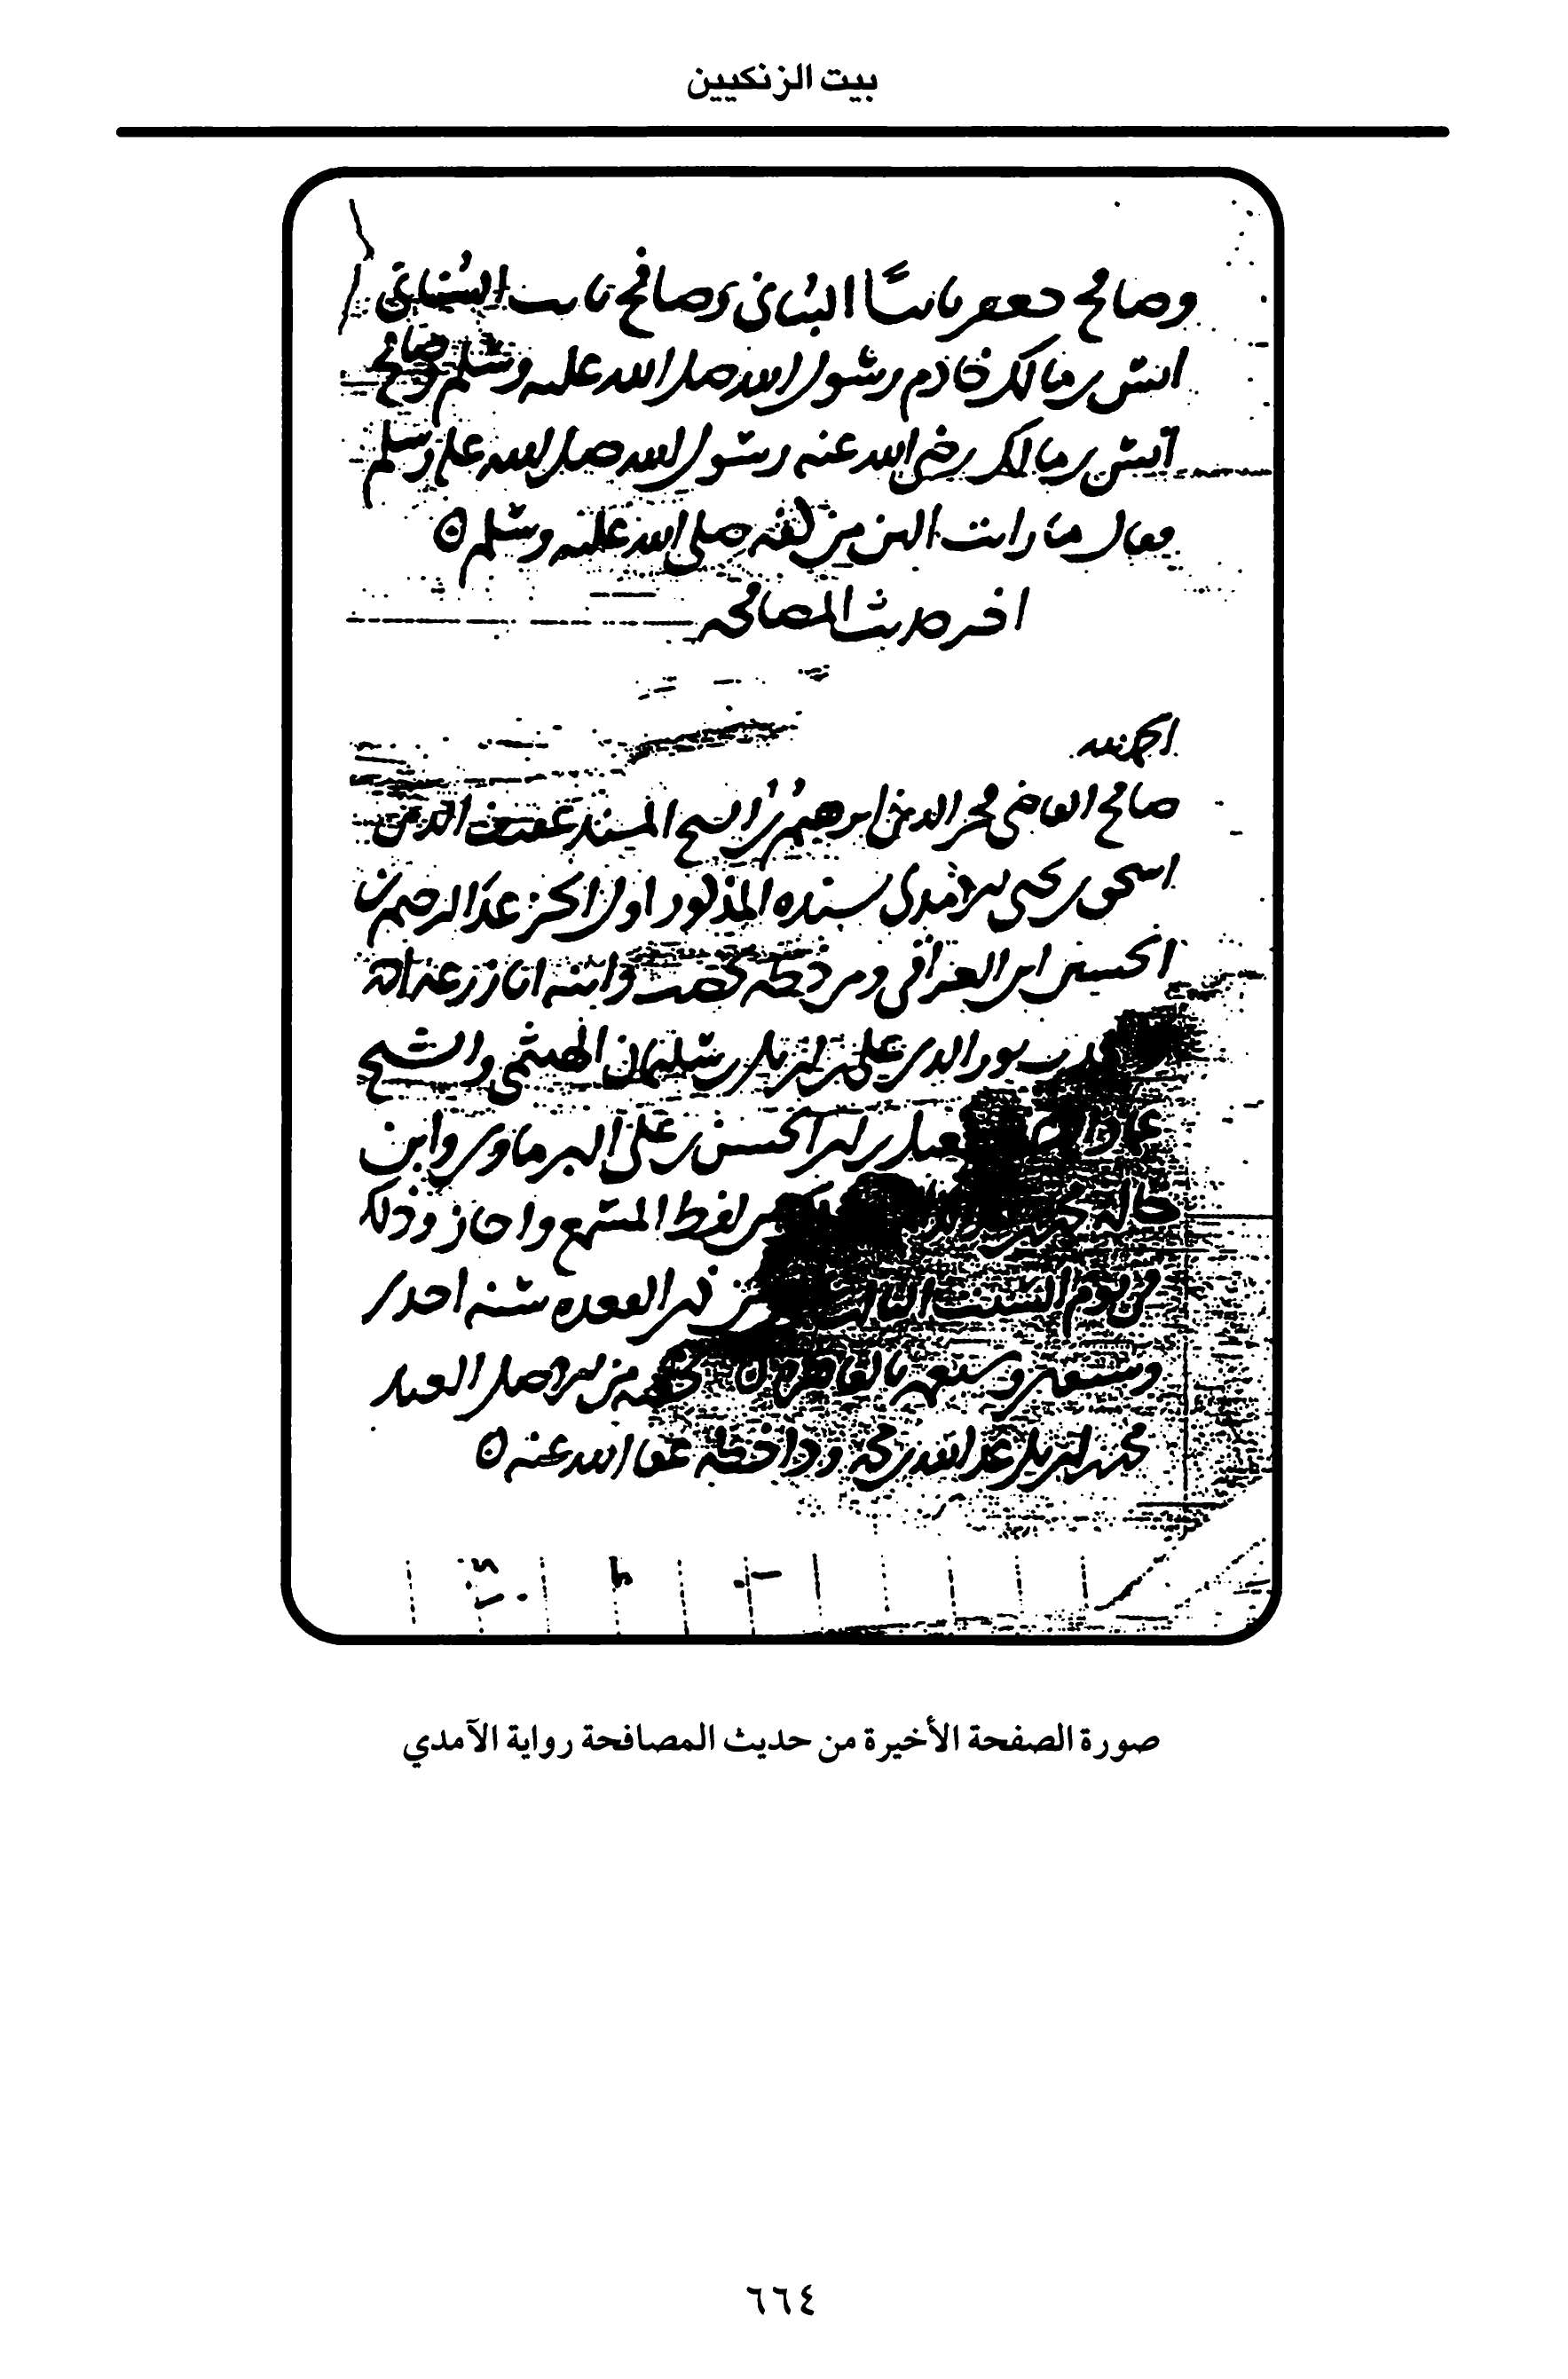 بيت الزنكيين
وصافح جعفر ثابتا البناني وصافح ثابت البناني
انس بن مالك خادم رسول الله صلى الله عليه وسلم وصافح
انس بن مالك رضي الله عنه رسول الله صلى الله عليه وسلم
وقال ما رايت الين من كفه صلى الله عليه وسلم ه
اخر حديث المصافحه
الحمد لله
صافح القاضي الدين ابرهيم الشيخ المسند عفيف الدين
اسحق بن يحيى الامدي بسنده المذكور اول الجزء عبد الرحيم بن
الحسين ابن العراقي ومن خطه لخصت وابنه ابا زرعة
نور الدين علي بن ابي بكر بن سليمان الهيثمي والشيخ
بن ابي الحسن بن علي البرماوي وابن
خاله من لفظ المسمع واجاز وذلك
في يوم السبت الثالث من ذي القعده سنه احدى
وستين وسبعمايه بالقاهره ه من الاصل العبد
محمد بن ابي بكر عبد الله بن محمد عفا الله عنه ه
صورة الصفحة الأخيرة من حديث المصافحة رواية الآمدي
٦٦٤